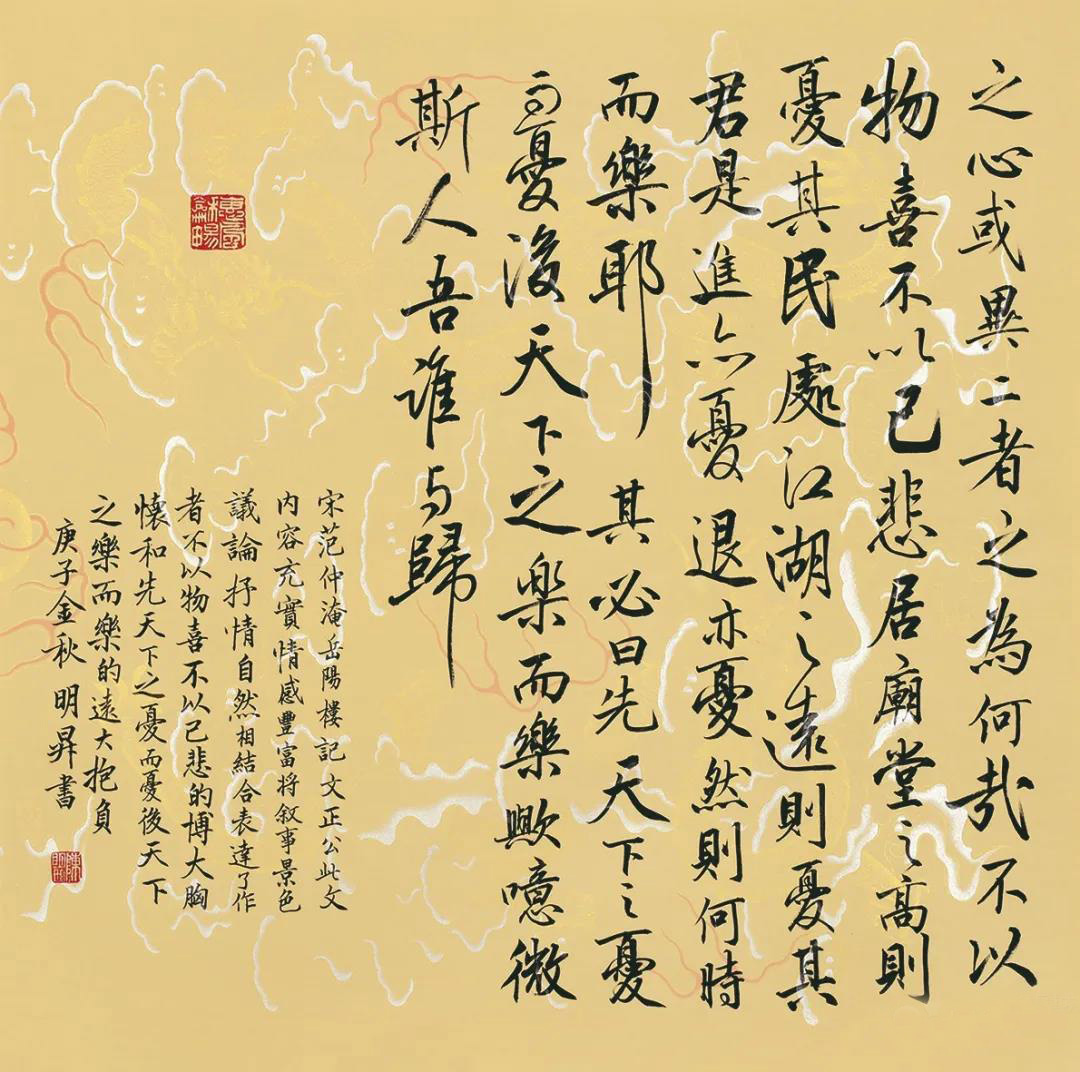 之心或異二者之為何哉不以
物喜不以己悲居廟堂之高則
憂其民處江湖之遠則憂其
君是進亦憂退亦憂然則何時
而樂耶其必曰先天下之憂
而憂後天下之楽而樂歟噫微
斯人吾誰与歸
宋范仲淹岳陽樓記文正公此文
内容充實情感豐富将叙事景色
議論抒情自然相結合表達了作
者不以物喜不以己悲的博大胸
懐和先天下之憂而憂後天下
之樂而樂的遠大抱負
庚子金秋明昇書